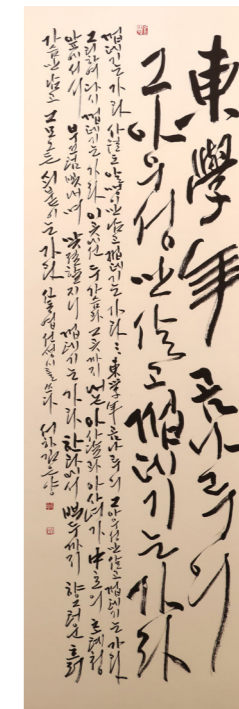 東學年 곰나루의
그 아우성만 살고 껍데기는 가라
껍데기는 가라 사월도 알맹이만 남고 껍데기는 가라 : 東學年 곰나루의 그 아우성만 살고 껍데기는 가라
그리하여 다시 껍데기는 가라 이곳에선 두 가슴과 그곳까지 내논 아사달과 아사녀가 中立의 초례청
앞에 서서 부끄럼 빛내며 맞절할지니 껍데기는 가라 한라에서 백두까지 향그러운 흙
가슴만 남고 그 모오든 쇠붙이는 가라 신동엽 선생 시를 쓰다